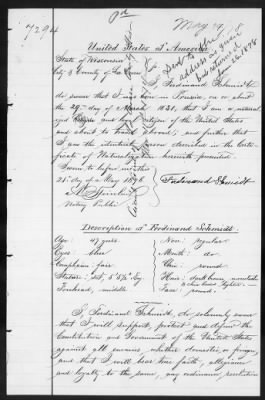 7294
May 29, 8
United States of America
State of Wisconsin
City & County of La Crosse
Ferdinand Schmidt
do swear that I was born in Prussia, on or about
the 29th day of March 1831, that I am a natural-
ized and loyal citizen of the United States
and about to travel abroad; and further that
I am the identical person described in the Certi-
ficate of Naturalization herewith presented.
Sworn to before me this
21st day of May 1878
Ferdinand Schmidt
Notary Public
Description of Ferdinand Schmidt:
Age: 47 years
Eyes: blue
Complexion: fair
Stature: 5' 5 1/2" Eng.
Forehead, middle
Nose: regular
Mouth: do
Chin: round
Hair: dark brown, mustache
& chin beard lighter
Face: round
I, Ferdinand Schmidt, do solemnly swear
that I will support, protect and defend the
Constitution and Government of the United States
against all enemies, whether domestic or foreign,
and that I will bear true faith, allegiance
and loyalty to the same, any ordinance, resolution
Send to
address as given
June 26, 1878